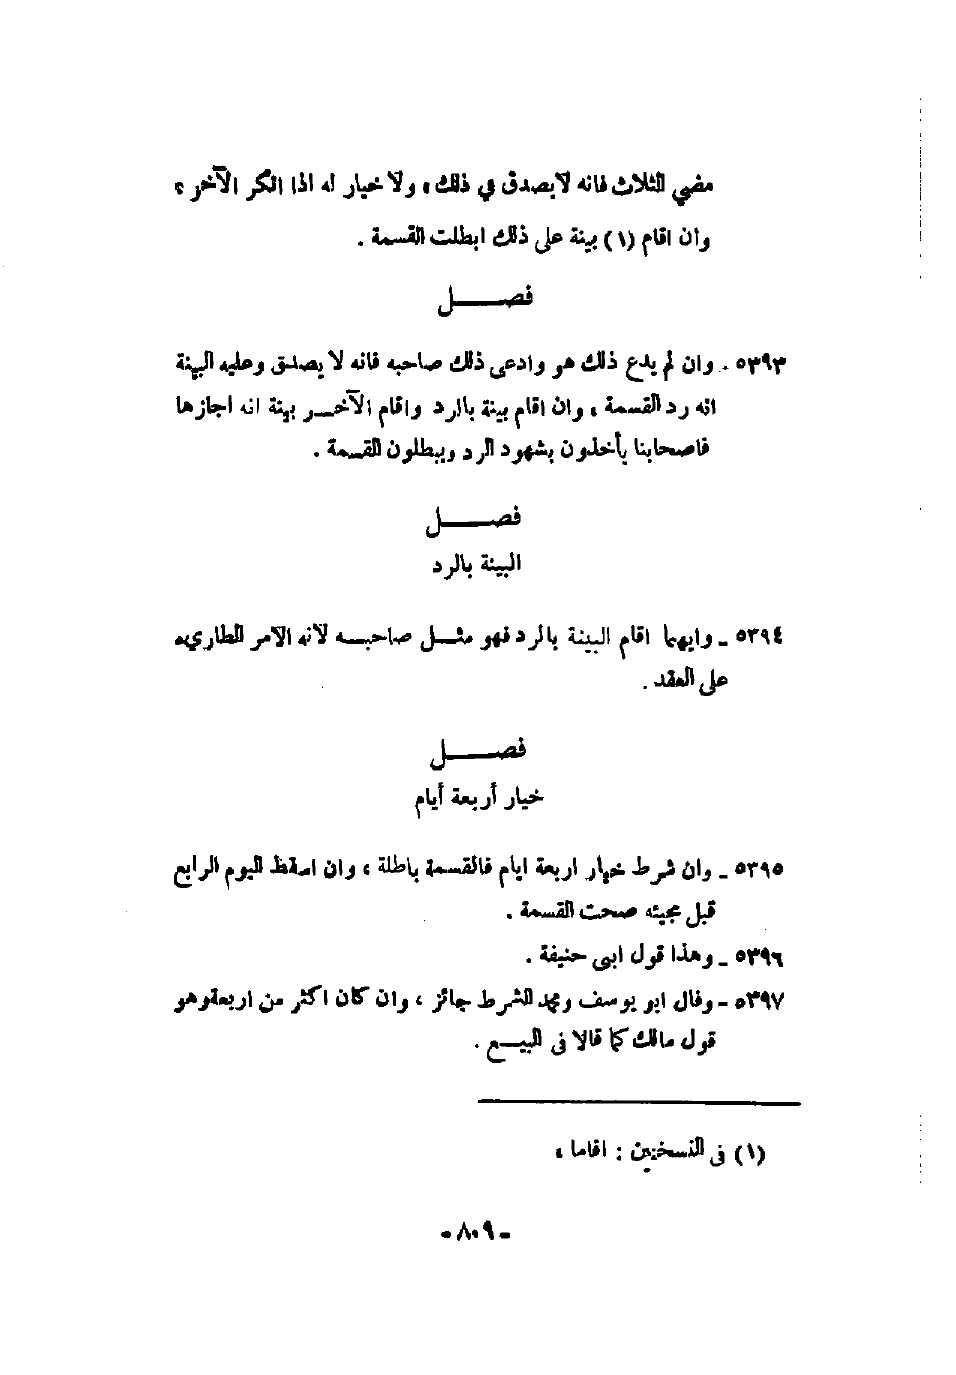 مضي الثلاث فانه لا يصدق في ذلك ، ولا خيار له اذا انكر الآخر ،
وان اقام (١) بينة على ذلك ابطلت القسمة .
فصـــــل
٥٣٩٣ ـ وان لم يدع ذلك هو وادعى ذلك صاحبه فانه لا يصدق وعليه البينة
انه رد القسمة ، وان اقام بينة بالرد واقام الآخـر بينة انه اجازها
فاصحابنا يأخذون بشهود الرد ويبطلون القسمة .
فصـــــل
البينة بالرد
٥٣٩٤ ـ وايهما اقام البينة بالرد فهو مثـل صاحبـه لأنه الامر الطاريء
على العقد .
فصـــــل
خيار أربعة أيام
٥٣٩٥ ـ وان شرط خيار اربعة ايام فالقسمة باطلة ، وان اسقط اليوم الرابع
قبل مجيئه صحت القسمة .
٥٣٩٦ ـ وهذا قول ابي حنيفة .
٥٣٩٧ ـ وقال ابو يوسف ومحمد الشرط جائز ، وان كان اكثر من اربعة وهو
قول مالك كما قالا في البيـع .
(١) في النسختين : اقاما ،
- ٨٠٩ -